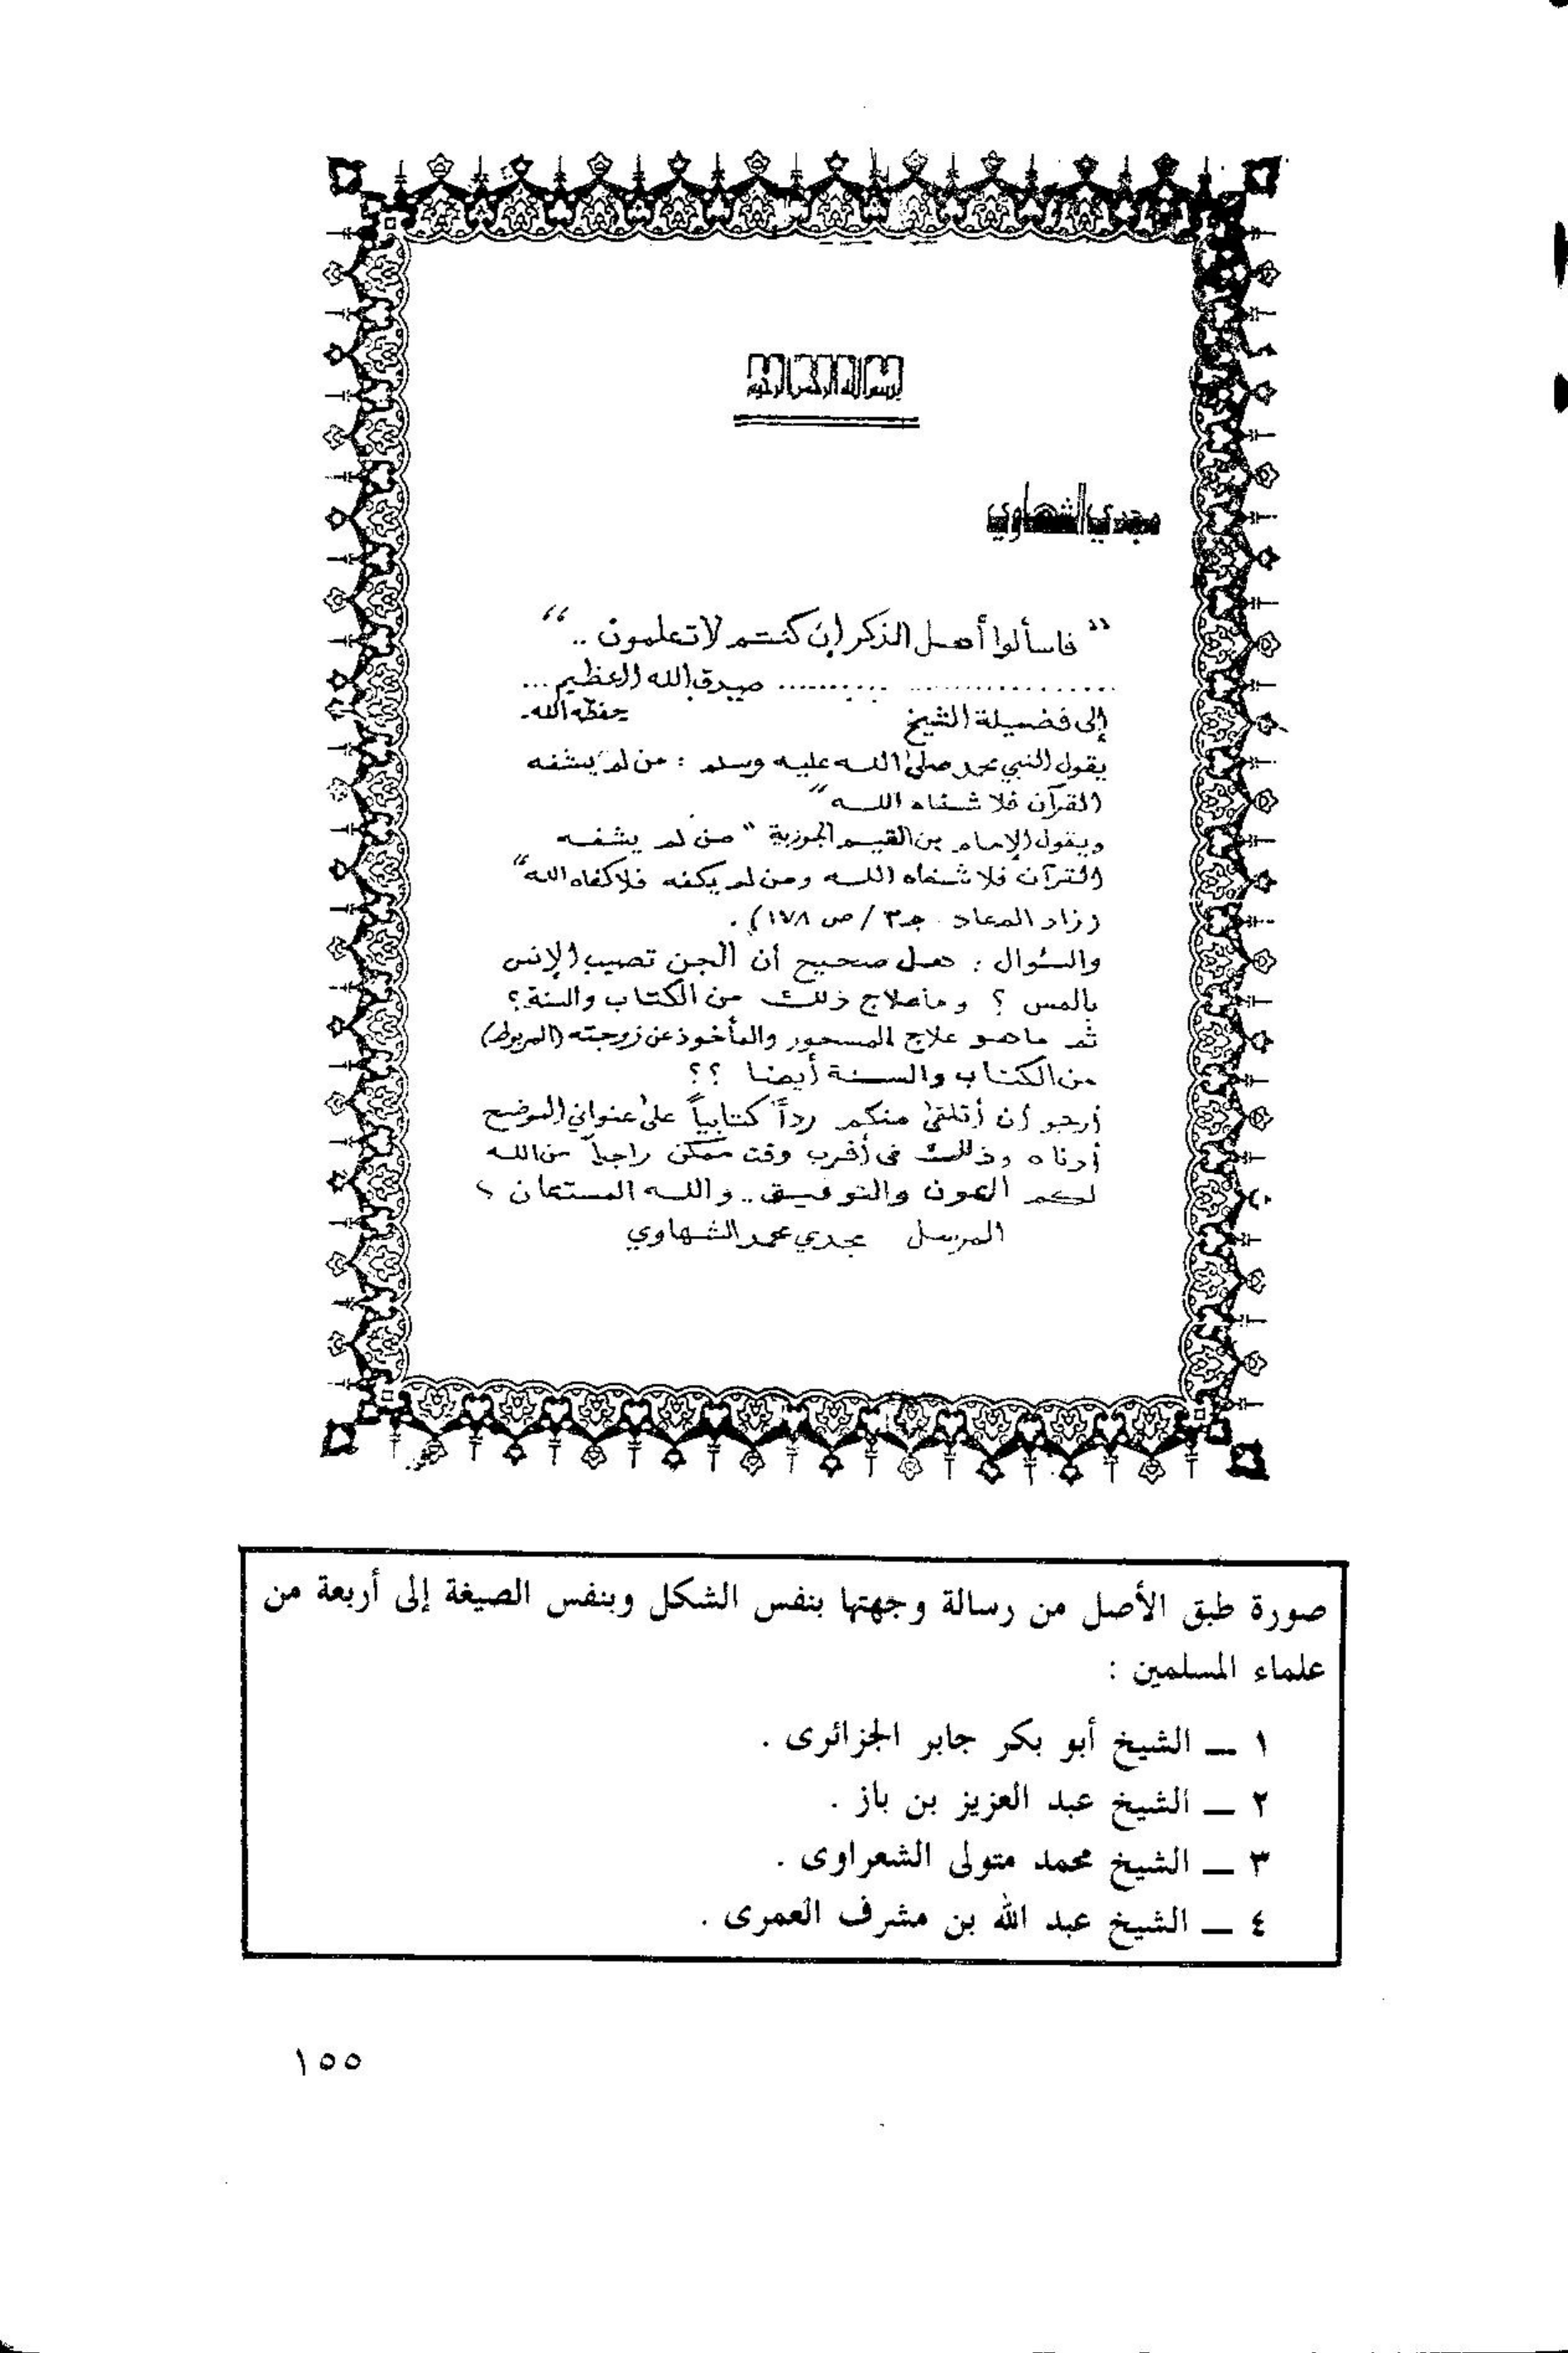 بسم الله الرحمن الرحيم
مجدي الشهاوي
“ فاسألوا أهل الذكر إن كنتم لا تعلمون .. ”
.......................... صدق الله العظيم ...
إلى فضيلة الشيخ حفظه الله.
يقول النبي محمد صلى الله عليه وسلم : من لم يشفه
القرآن فلا شفاه الله ”
ويقول الإمام بن القيم الجوزية “ من لم يشفه
القرآن فلا شفاه الله ومن لم يكفه فلا كفاه الله ”
( زاد المعاد جـ٣ / ص ١٧٨ ) .
والسئوال : هل صحيح أن الجن تصيب الإنس
بالمس ؟ وما علاج ذلك من الكتاب والسنة ؟
ثم ما هو علاج المسحور والمأخوذ عن زوجته (المربوط)
من الكتاب والسنة أيضا ؟؟
أرجو أن أتلقى منكم رداً كتابياً على عنواني الموضح
أدناه وذلك فى أقرب وقت ممكن راجياً من الله
لكم العون والتوفيق .. والله المستعان ؟
المرسل مجدي محمد الشهاوي
صورة طبق الأصل من رسالة وجهتها بنفس الشكل وبنفس الصيغة إلى أربعة من
علماء المسلمين :
١ ــ الشيخ أبو بكر جابر الجزائرى .
٢ ــ الشيخ عبد العزيز بن باز .
٣ ــ الشيخ محمد متولى الشعراوى .
٤ ــ الشيخ عبد الله بن مشرف العمرى .
١٥٥